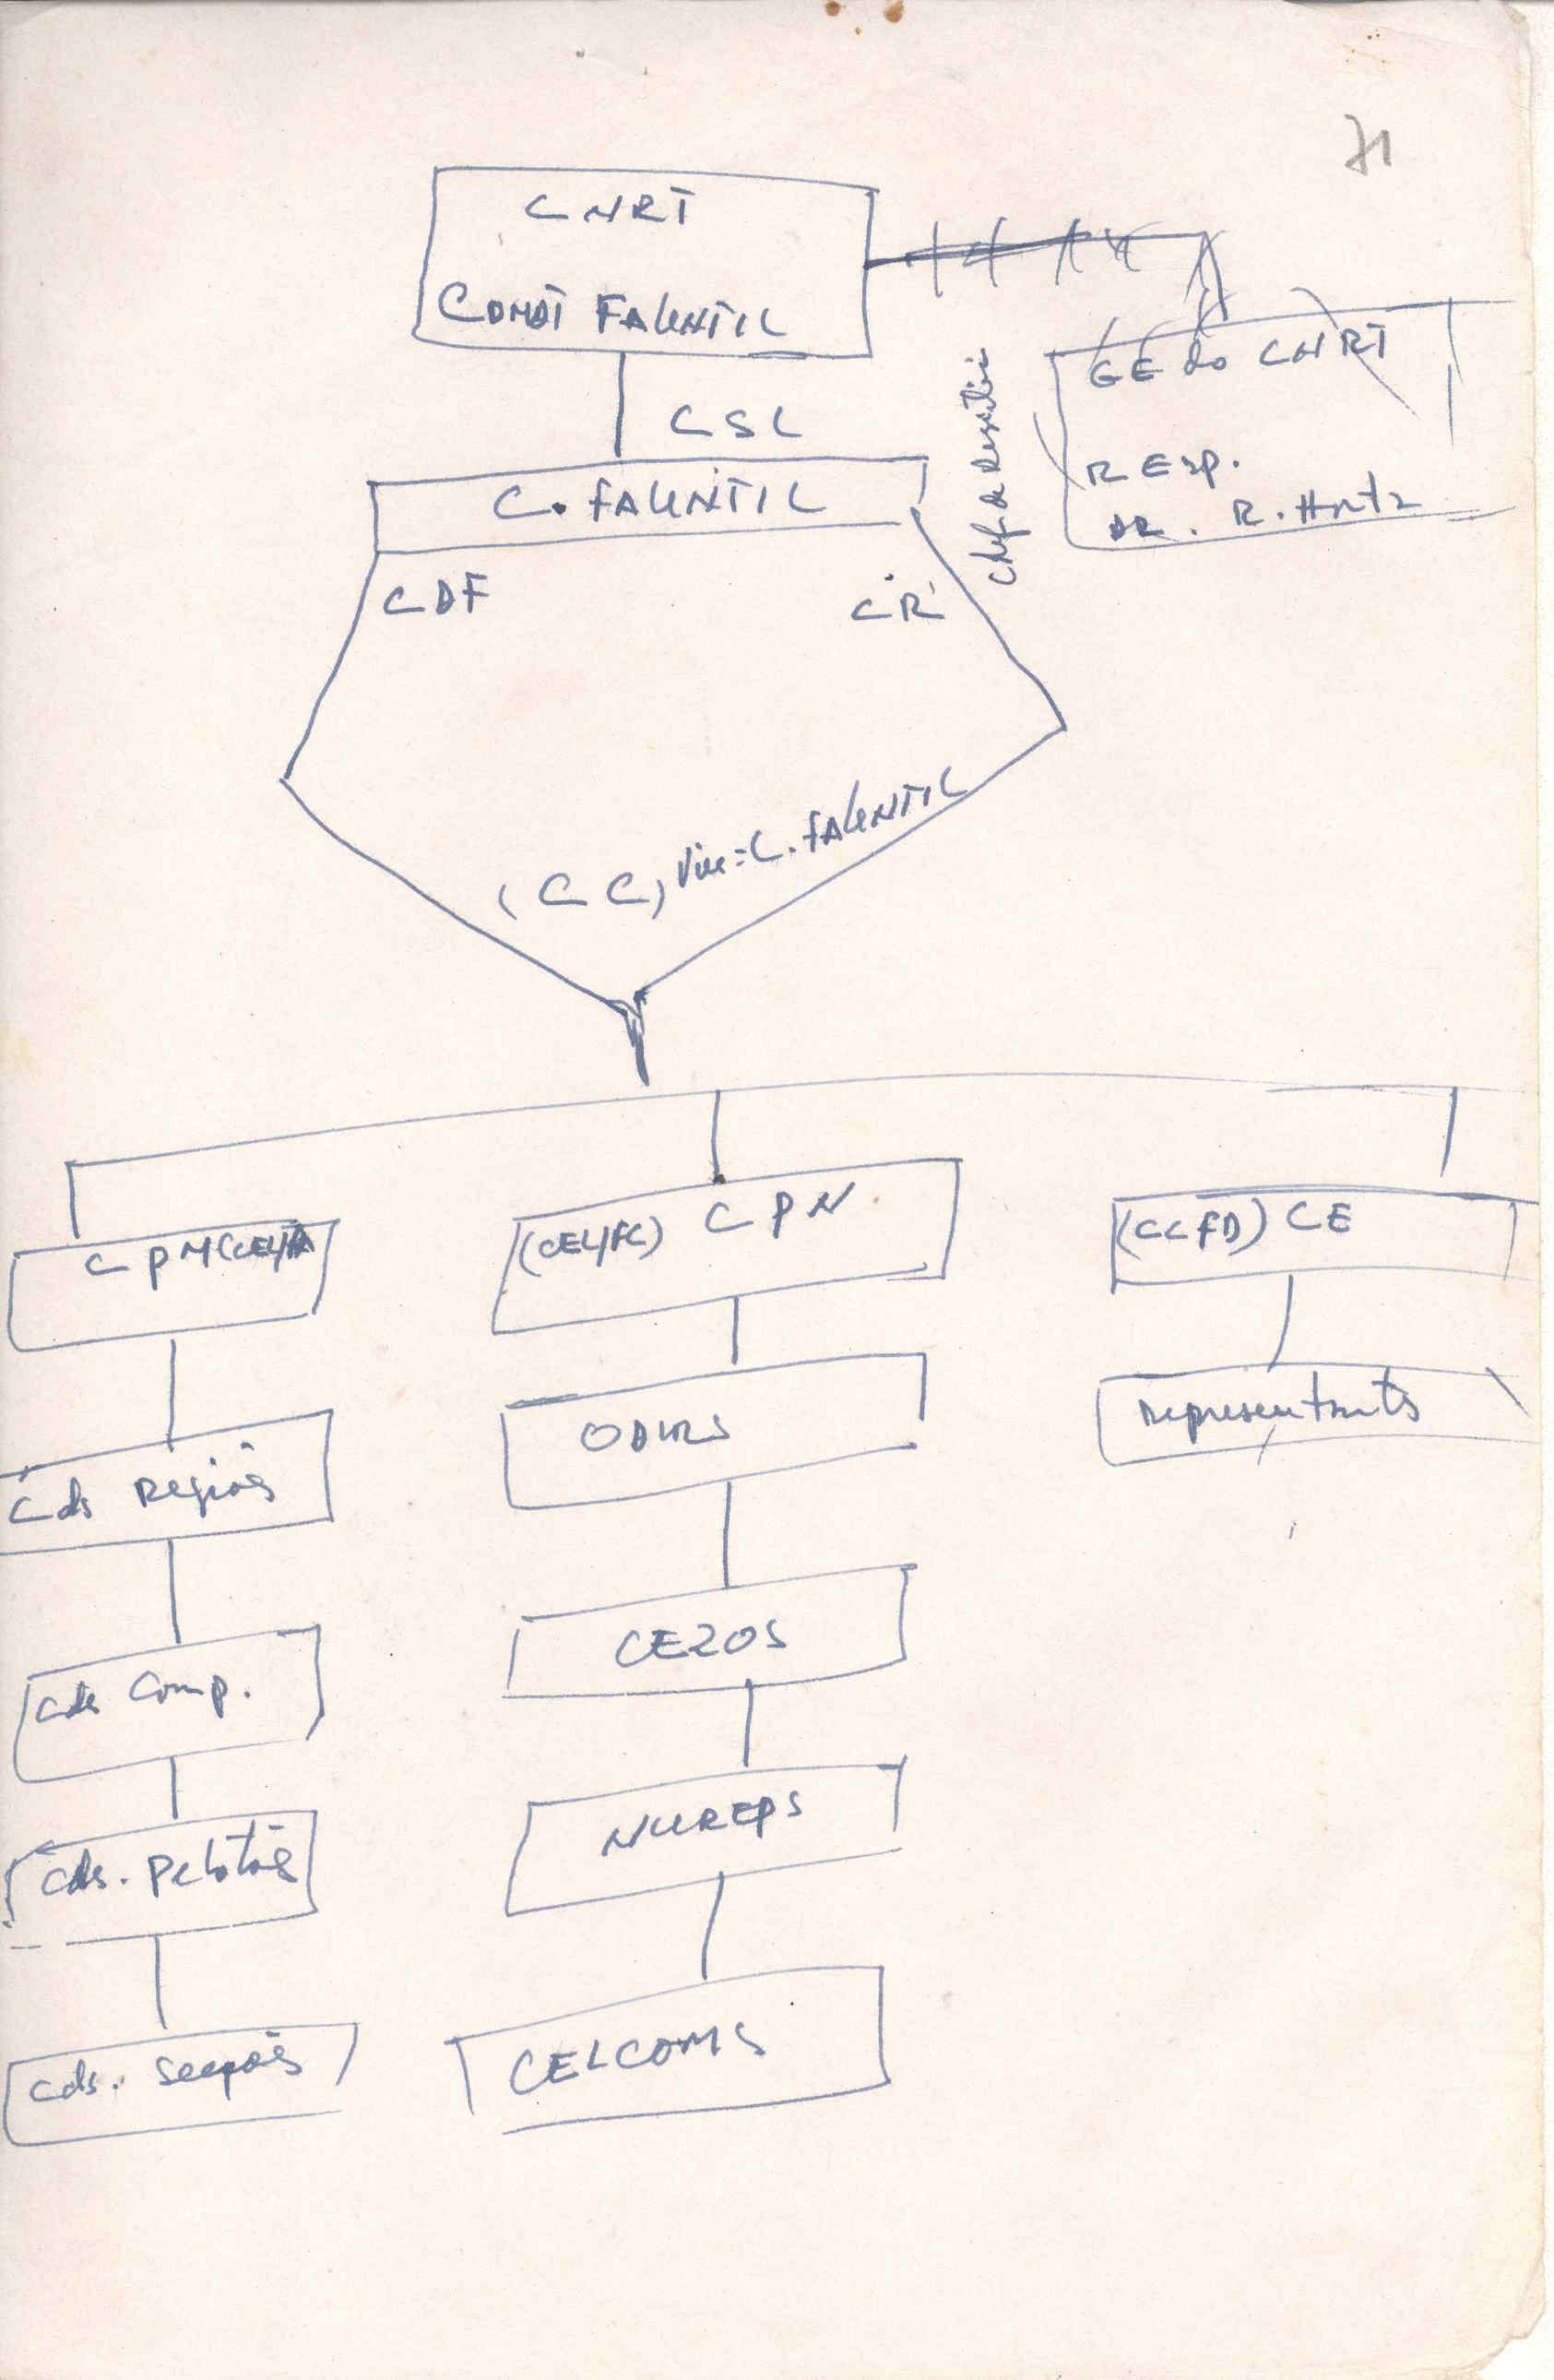 71
CNRT
COMDT FALINTIL
GE do CNRT
RESP.
DR. R. Horta
CSL
C. FALINTIL
CDF
CR
(CC) Vice = C. FALINTIL
CPM (CEL/FA
(CEL/FC) CPN
(CCFD) CE
Cds Regiões
ODIRS
Representants
CEZOS
Cds Comp.
NUREPS
Cds. Pelotões
CELCOMS
Cds. Secções